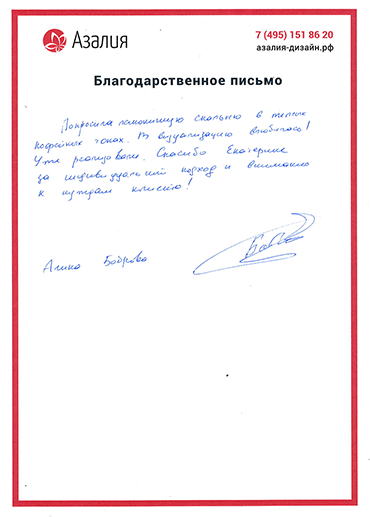 Азалия
7 (495) 151 86 20
азалия-дизайн.рф
Благодарственное письмо
Попросила лаконичную спальню в теплых
кофейных тонах. В визуализацию влюбилась!
Уже реализовали. Спасибо Екатерине
за индивидуальный подход и внимание
к нуждам клиента!
Алина Боброва